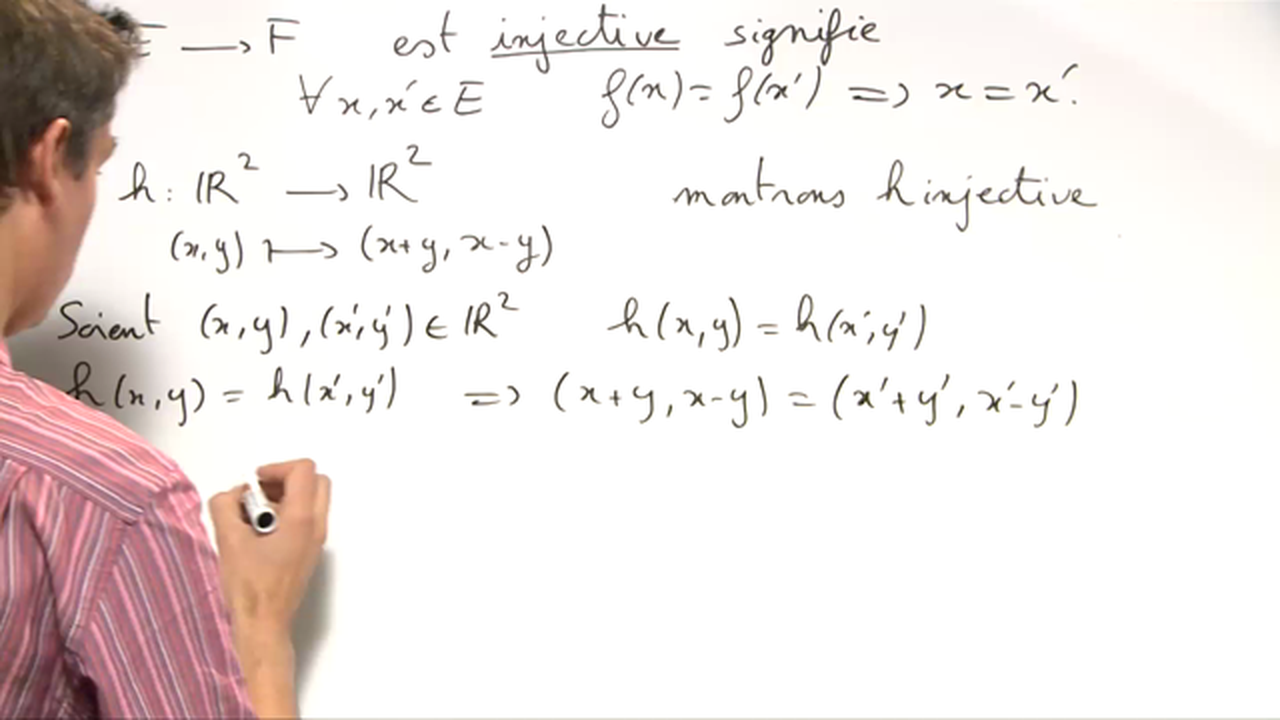 E ⟶ F est injective signifie
∀ x, x' ∈ E f(x) = f(x') => x = x'.
h : ℝ² ⟶ ℝ² montrons h injective
(x, y) ⟼ (x+y, x-y)
Soient (x, y), (x', y') ∈ ℝ² h(x, y) = h(x', y')
h(x, y) = h(x', y') => (x+y, x-y) = (x'+y', x'-y')